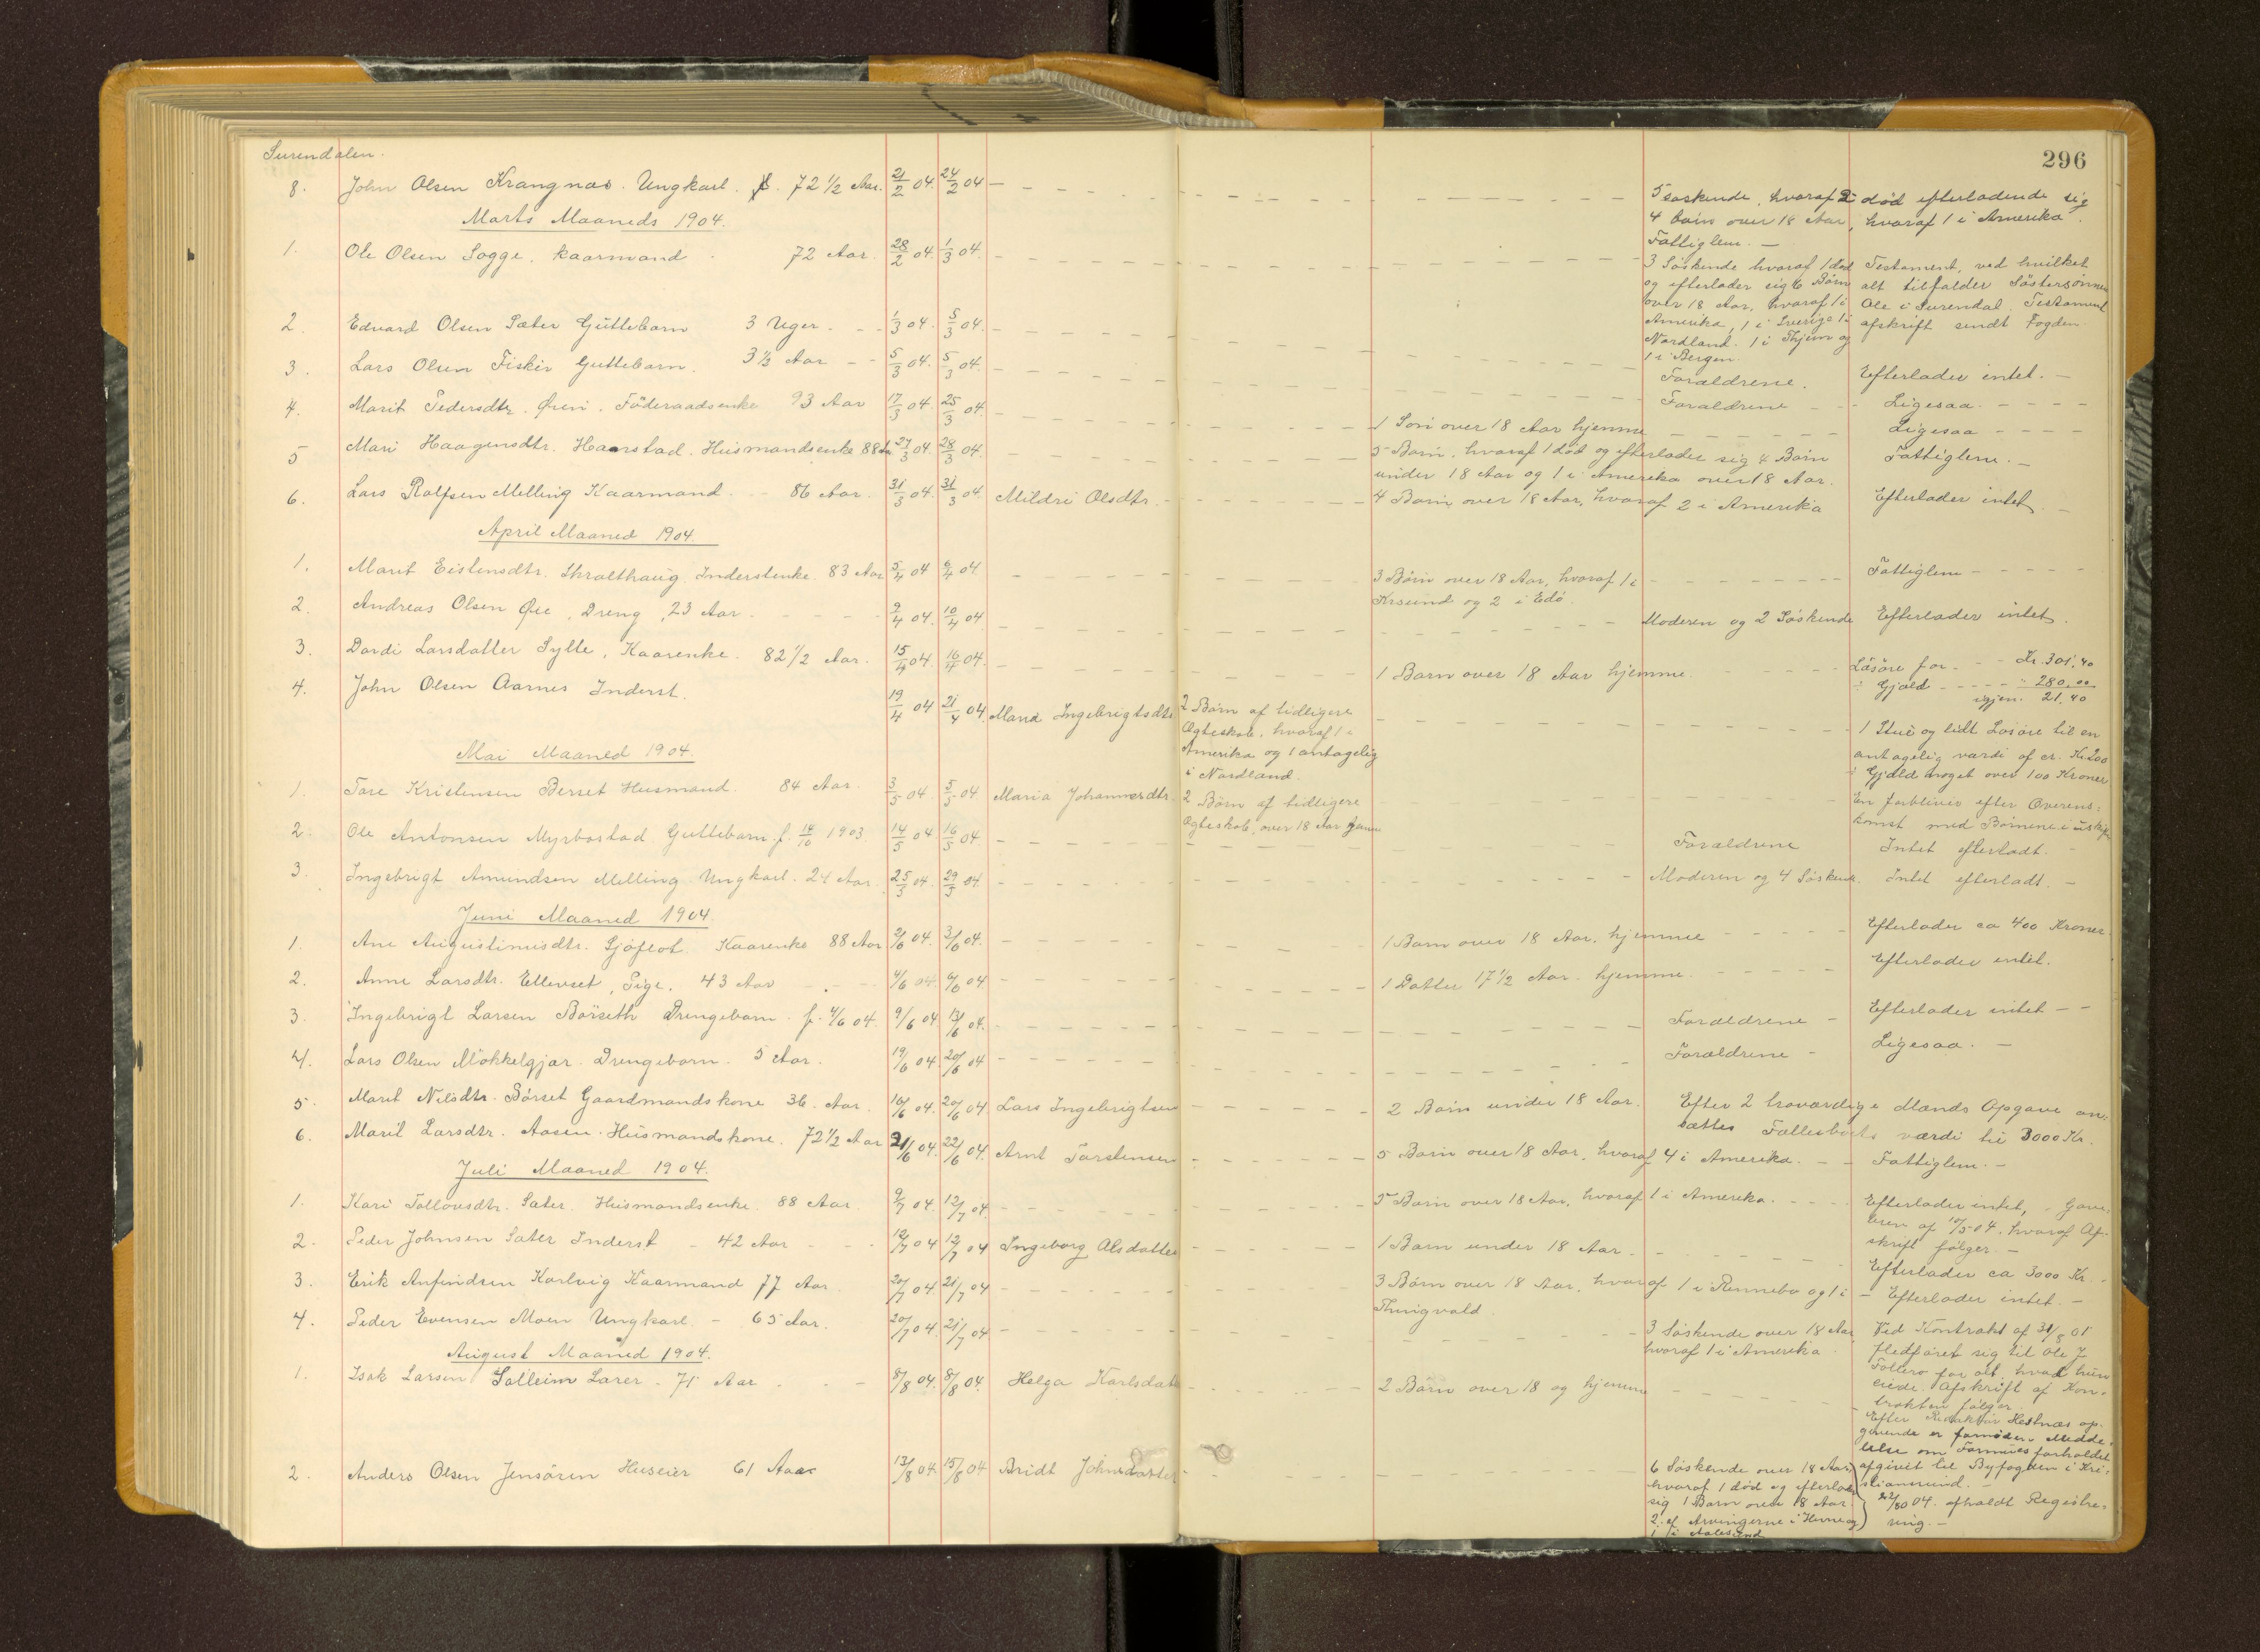 296
Surendalen.
8. John Olsen Krangnæs. Ungkarl. 72 1/2 Aar. 21/2 04. 24/2 04 5 søskende, hvoraf 2 død efterladende sig
4 børn over 18 Aar, hvoraf 1 i Amerika.
Fattiglem. —
Marts Maaneds 1904.
1. Ole Olsen Sogge. Kaarmand 72 Aar. 28/2 04. 1/3 04. 3 Søskende hvoraf 1 død Testament, ved hvilket
og efterlader sig 6 Børn alt tilfalder Søstersønnen
over 18 Aar, hvoraf 1 i Ole i Surendal. Testament
Amerika, 1 i Sverige 1 i afskrift sendt Fogden.
Nordland. 1 i Thjem og
1 i Bergen.
2. Edvard Olsen Sæter Guttebarn 3 Uger. 1/3 04. 5/3 04. Forældrene. Efterlader intet. —
3. Lars Olsen Fiske Guttebarn. 3 1/2 Aar 5/3 04. 5/3 04. Forældrene Ligesaa.
4. Marit Pedersdtr. Øren. Föderaadsenke 93 Aar 17/3 04. 25/3 04. 1 Søn over 18 Aar hjemme Ligesaa
5 Mari Haagensdtr. Haarstad. Husmandsenke 88 Aar 27/3 04. 28/3 04. 5 Børn, hvoraf 1 død og efterlader sig 4 Børn Fattiglem. —
under 18 Aar og 1 i Amerika over 18 Aar.
6. Lars Rolfsen Melling Kaarmand. 86 Aar. 31/3 04. 31/3 04. Mildri Olsdtr. 4 Børn over 18 Aar, hvoraf 2 i Amerika Efterlader intet
April Maaned 1904.
1. Marit Eistensdtr. Skralthaug Inderstenke. 83 Aar 5/4 04 6/4 04. 3 Børn over 18 Aar, hvoraf 1 i Fattiglem
Krsund og 2 i Edø.
2. Andreas Olsen Øie, Dreng, 23 Aar. 9/4 04. 10/4 04 Moderen og 2 Søskende Efterlader intet.
3. Dordi Larsdatter Sylte, Kaarenke. 82 1/2 Aar. 15/4 04. 16/4 04. 1 Barn over 18 Aar hjemme. Løsøre for Kr. 301,40
÷ Gjæld 280,00
igjen. 21,40
4. John Olsen Aarnes Inderst. 19/4 04 21/4 04. Mana Ingebrigtsdtr 2 Børn af tidligere
Ægteskab, hvoraf 1 i
Amerika og 1 antagelig
i Nordland.
1 Stue og lidt Løsøre til en
antagelig værdi af cr. Kr 200
÷ Gjæld noget over 100 Kroner
Mai Maaned 1904.
1. Tore Kristensen Berset Husmand. 84 Aar. 3/5 04. 5/5 04. Maria Johannesdtr. 2 Børn af tidligere
Ægteskab, over 18 Aar hjemme
En forbliver efter Overens-
komst med Børnene i uskiftet
2. Ole Antonsen Myrbostad Guttebarn f. 14/10 1903 14/5 04 16/5 04. Forældrene Intet efterladt. -
3. Ingebrigt Amundsen Melling Ungkarl. 24 Aar. 25/5 04. 29/5 04. Moderen og 4 Søskende. Intet efterladt. -
Juni Maaned 1904.
1. Ane Augustinusdtr. Sjøflot. Kaarenke 88 Aar 2/6 04. 3/6 04. 1 Barn over 18 Aar. hjemme Efterlader ca 400 Kroner.
2. Anne Larsdtr. Ellevset, Pige. 43 Aar 4/6 04. 6/6 04 1 Datter 17 1/2 Aar. hjemme. Efterlader intet.
3. Ingebrigt Larsen Börseth Drengebarn. f. 4/6 04. 9/6 04. 13/6 04. Forældrene Efterlader intet
4. Lars Olsen Mökkelgjær. Drengebarn. 5 Aar. 19/6 04. 20/6 04 Forældrene Ligesaa. —
5. Marit Nilsdtr. Börset Gaardmandskone 36. Aar. 16/6 04. 20/6 04. Lars Ingebrigtsen 2 Børn under 18 Aar. Efter 2 troværdige Mands Opgave an-
sættes Fællesboets værdi til 3000 Kr.
6. Marit Larsdtr. Aasen. Husmandskone. 72 1/2 Aar 21/6 04. 22/6 04. Arnt Torstensen 5 Børn over 18 Aar, hvoraf 4 i Amerika. Fattiglem. —
Juli Maaned 1904.
1. Kari Tollovsdtr. Sæter. Husmandsenke. 88 Aar. 9/7 04. 12/7 04. 5 Børn over 18 Aar, hvoraf 1 i Amerika. Efterlader intet, Gave-
brev af 10/5 04. hvoraf Af-
skrift følger. —
2. Peder Johnsen Sæter Inderst 42 Aar 12/7 04 12/7 04 Ingeborg Alsdatter 1 Barn under 18 Aar. Efterlader ca 3000 Kr.
3. Erik Anfindsen Karlvig Kaarmand 77 Aar. 20/7 04. 21/7 04 3 Børn over 18 Aar, hvoraf 1 i Rennebo og 1 i Efterlader intet. —
Thingvold.
4. Peder Evensen Moen Ungkarl. 65 Aar. 20/7 04. 21/7 04 3 Søskende over 18 Aar
hvoraf 1 i Amerika.
Ved Kontrakt af 31/8 01
fledføret sig til Ole J
Follerø for alt, hvad hun
eiede. Afskrift af Kon-
trakten følger.
August Maaned 1904.
1. Isak Larsen Solleim Lærer. 71 Aar 8/8 04. 8/8 04. Helga Karlsdatter 2 Børn over 18 og hjemme
Efter Redaktør Hestnæs op-
givende er fornøden Medde-
lelse om Formuesforholdet
afgivet til Byfogden i Kri-
stiansund. —
2. Anders Olsen Jensören Huseier 61 Aar 13/8 04. 15/8 04 Bridt Johnsdatter 6 Søskende over 18 Aar,
hvoraf 1 død og efterlader
sig 1 Barn over 18 Aar.
2 af Arvingerne i Hevne og
1 i Aalesund
04. afholdt Registre-
ring. —